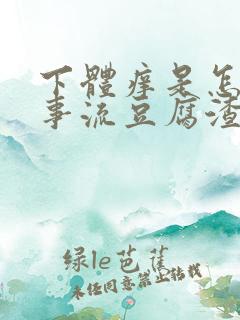 下體痒是怎
事流豆腐渣
绿le芭蕉
未任同意禁止转载